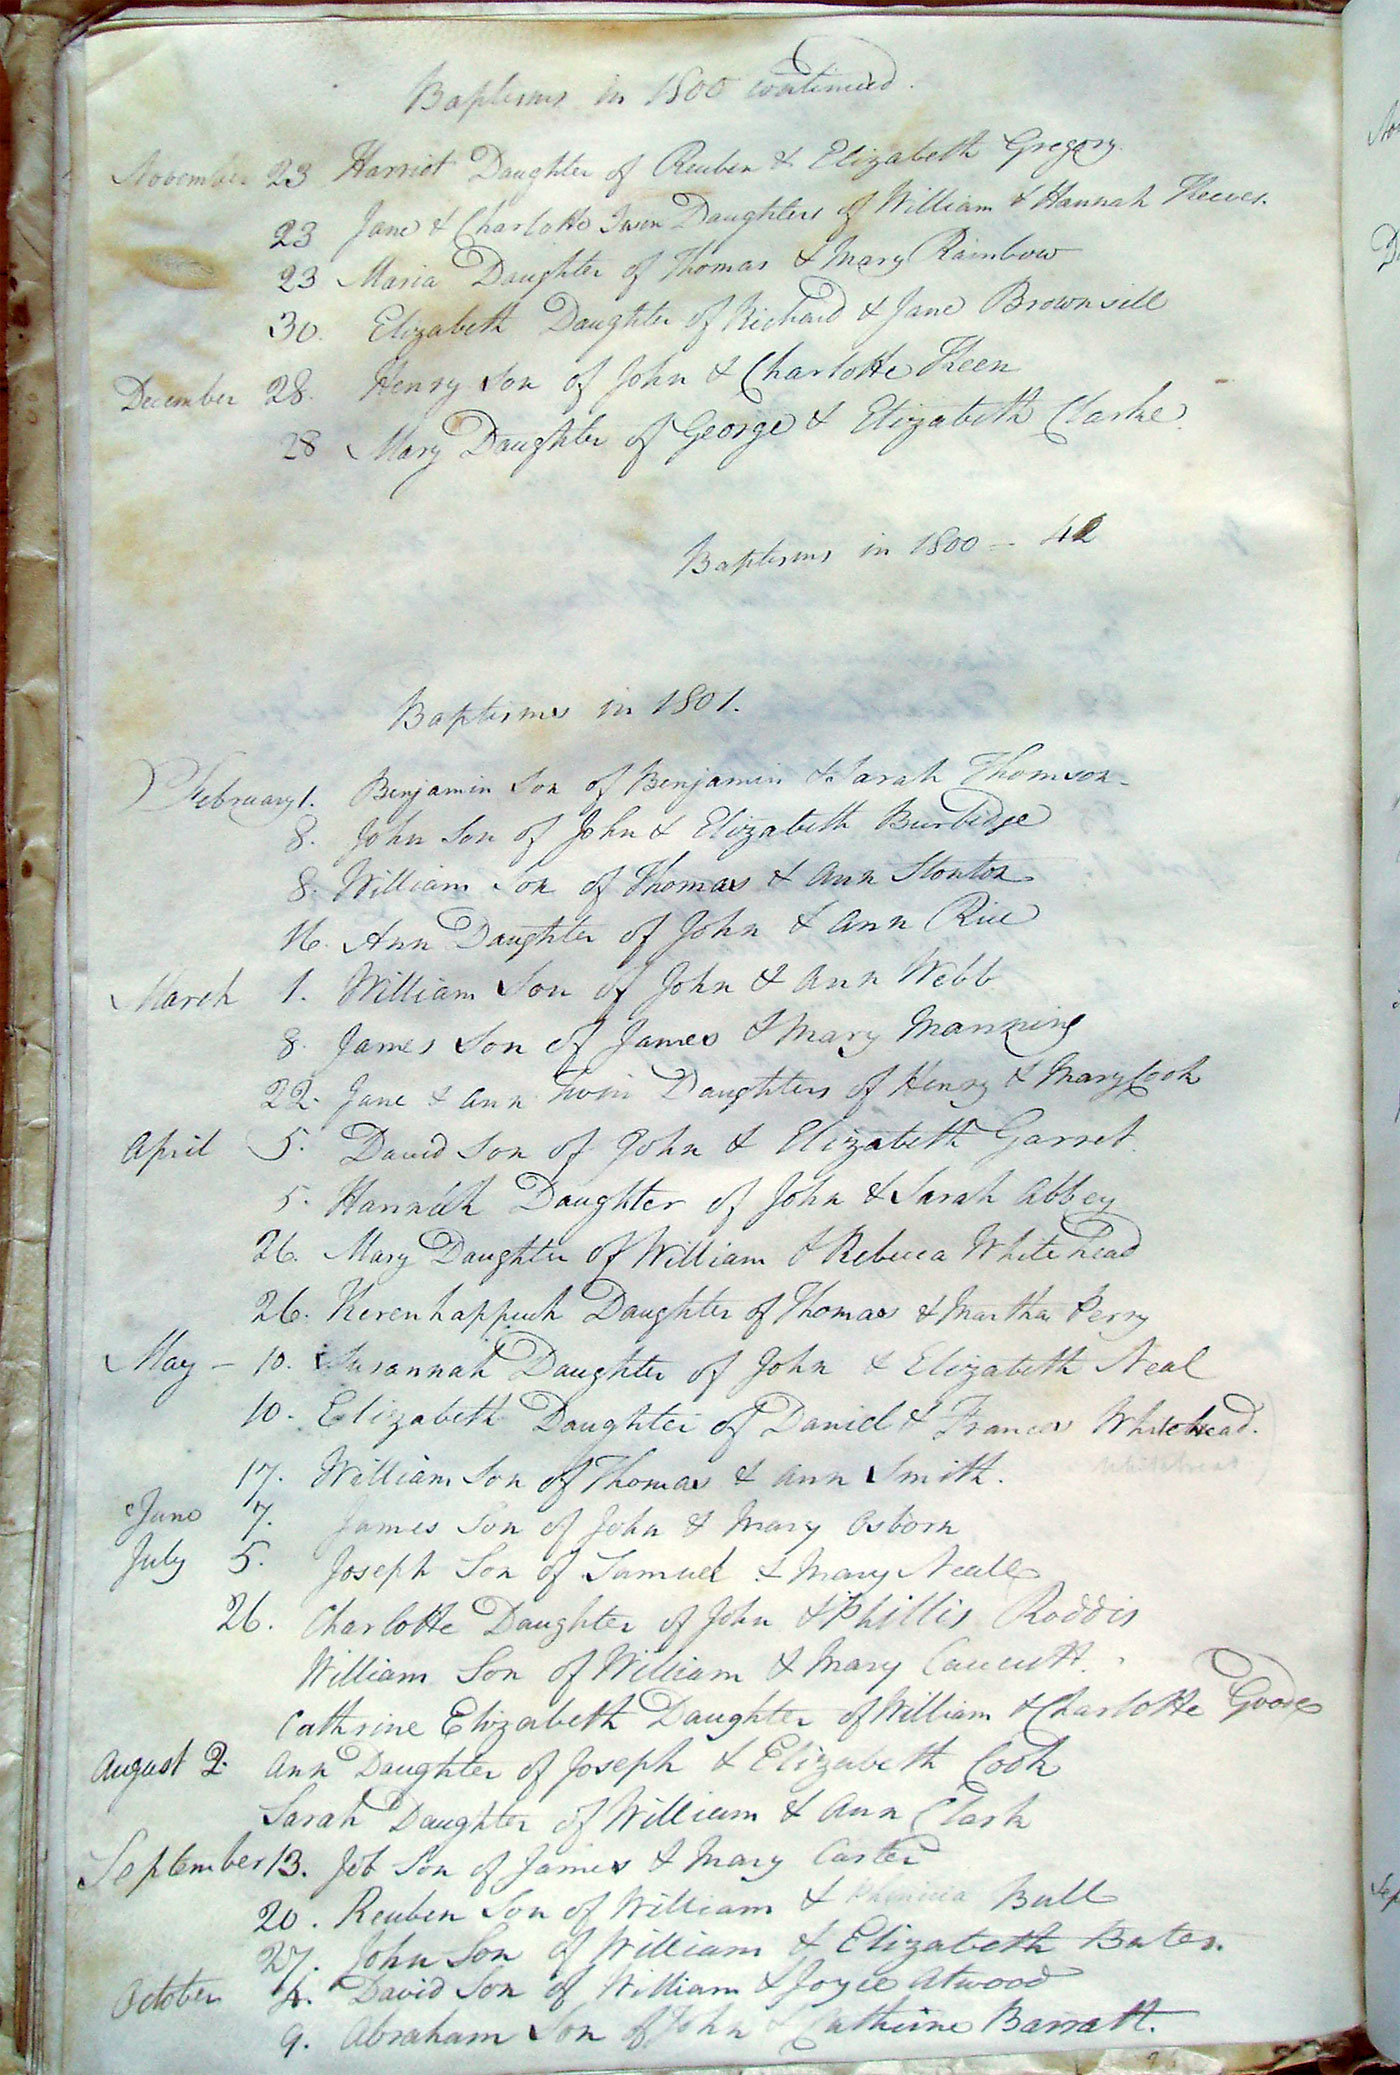 Baptisms in 1800 continued.
November 23 Harriet Daughter of Reuben & Elizabeth Gregory
23 Jane & Charlotte Twin Daughters of William & Hannah Reeves.
23 Maria Daughter of Thomas & Mary Rainbow
30. Elizabeth Daughter of Richard & Jane Brownsill
December 28. Henry Son of John & Charlotte Keen
28 Mary Daughter of George & Elizabeth Clarke.
Baptisms in 1800 – 42
Baptisms in 1801.
February 1. Benjamin Son of Benjamin & Sarah Thomson
8. John Son of John & Elizabeth Burbidge
8. William Son of Thomas & Ann Stonton
16. Ann Daughter of John & Ann Rice
March 1. William Son of John & Ann Webb
8. James Son of James & Mary Manning
22. Jane & Ann Twin Daughters of Henry & Mary Cook
April 5. David Son of John & Elizabeth Garret.
5. Hannah Daughter of John & Sarah Abbey
26. Mary Daughter of William & Rebecca Whitehead
26. Kerenhappuch Daughter of Thomas & Martha Perry
May – 10. Susannah Daughter of John & Elizabeth Neal
10. Elizabeth Daughter of Daniel & Frances Whitehead.
17. William Son of Thomas & Ann Smith.
June 7. James Son of John & Mary Osborn
July 5. Joseph Son of Samuel & Mary Neall
26. Charlotte Daughter of John & Phillis Roddis
William Son of William & Mary Caucutt.
Cathrine Elizabeth Daughter of William & Charlotte Goode
August 2. Ann Daughter of Joseph & Elizabeth Cook
Sarah Daughter of William & Ann Clark
September 13. Job Son of James & Mary Carter
20. Reuben Son of William & Bull
27. John Son of William & Elizabeth Bates.
October 4. David Son of William & Joyce Atwood
9. Abraham Son of John & Catherine Barratt.